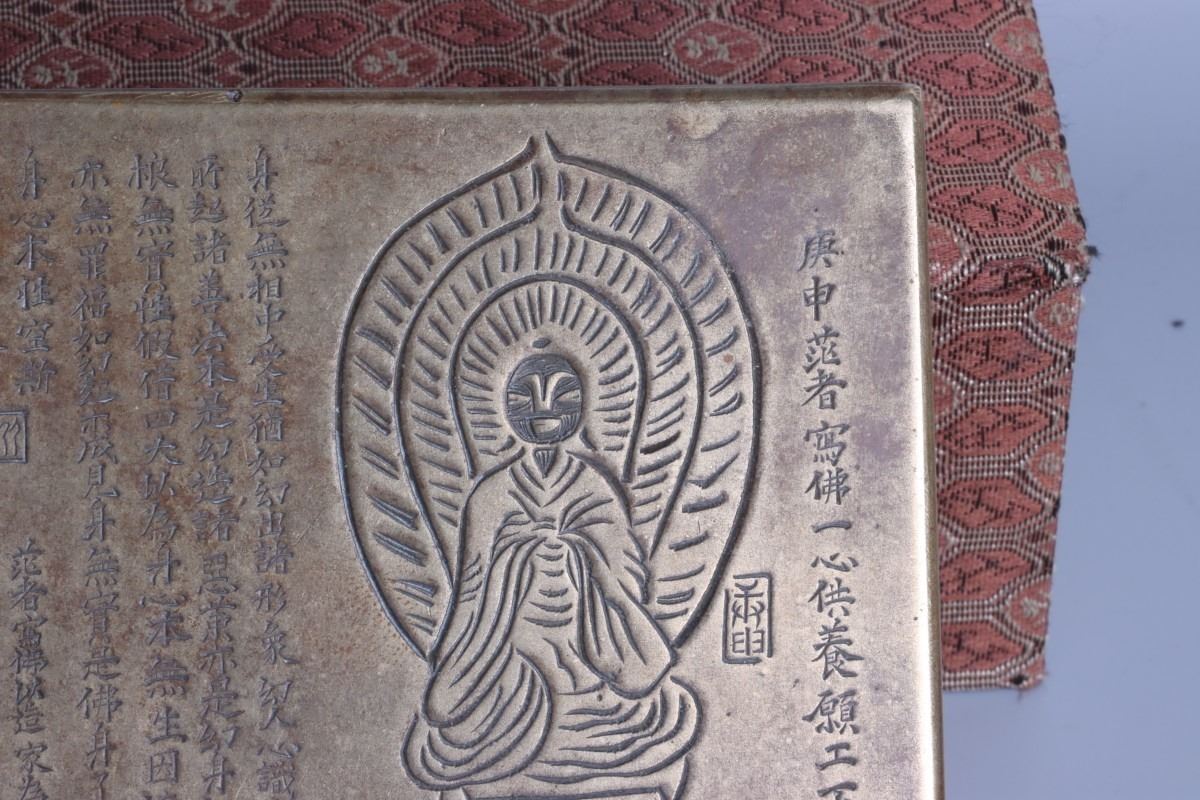 庚申茫者寫佛一心供養願工
身從無相中受生猶如幻出諸形象幻人心識
所起諸善法本是幻造諸惡業亦是幻身
根無實性假借四大以為身心本無生因
亦無罪福如幻起亦滅見身無實是佛身了
身心本性空斯
茫者寫佛以造家為